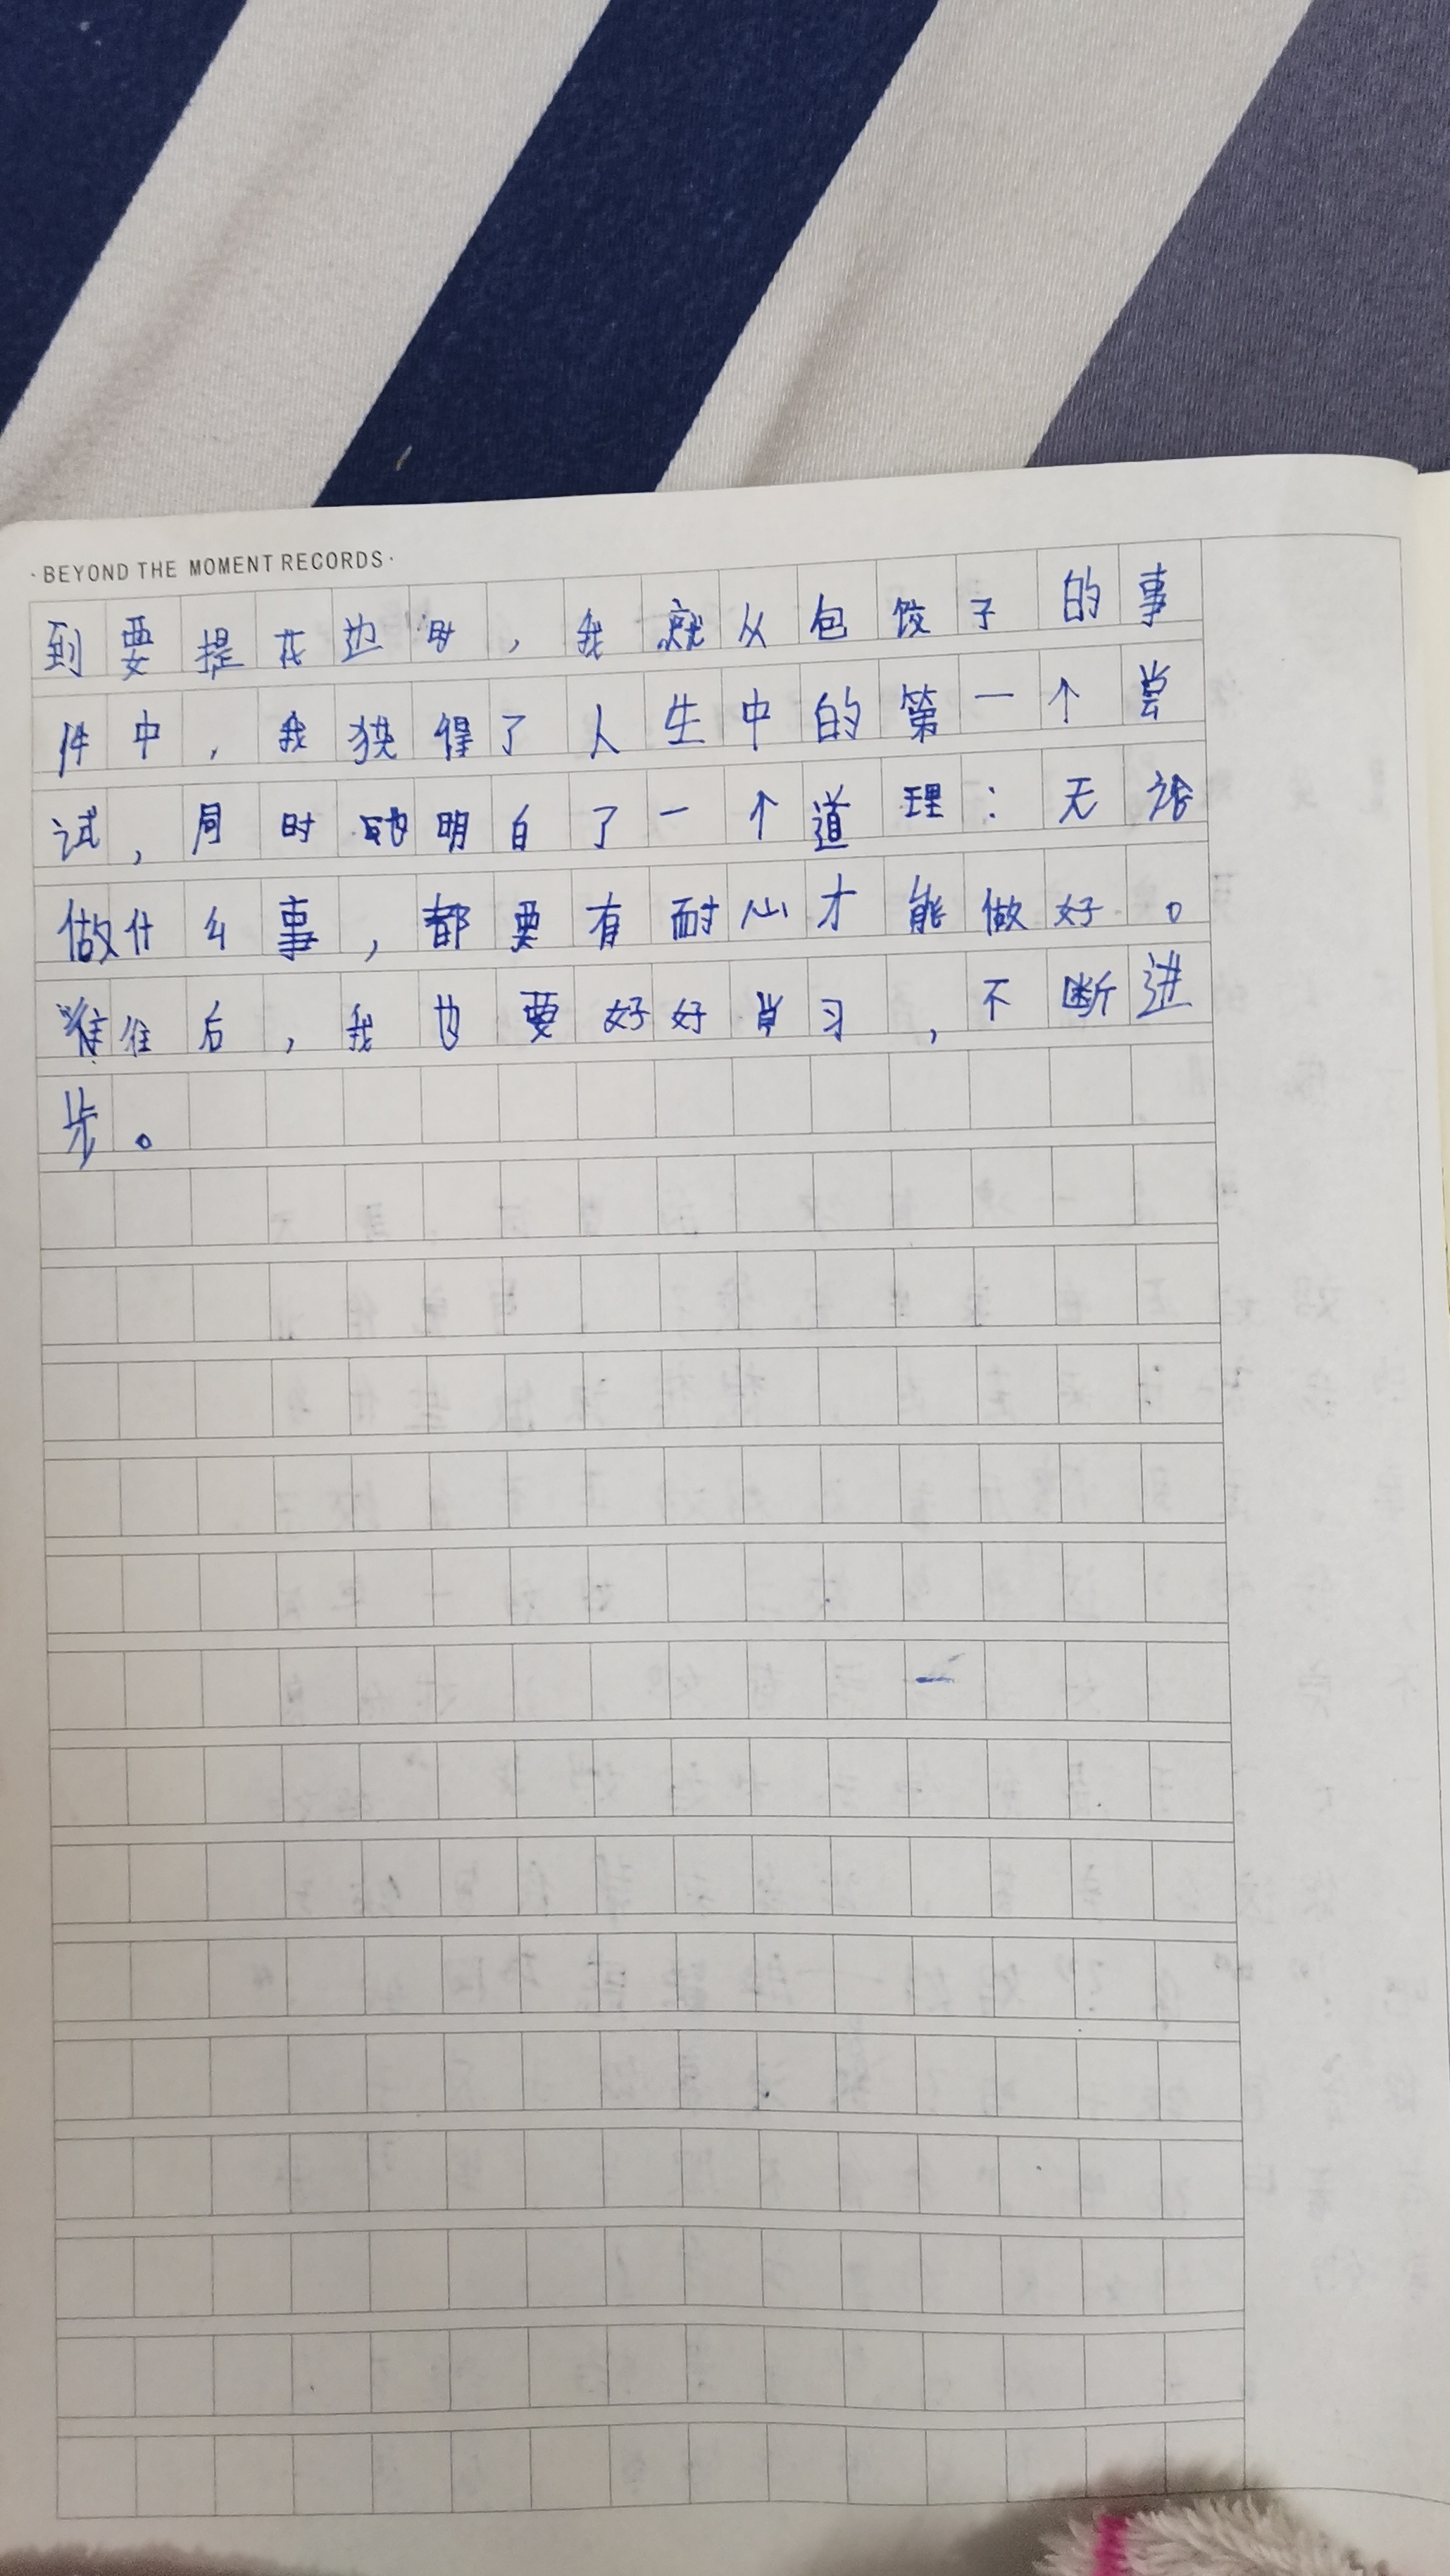 ·BEYOND THE MOMENT RECORDS·
到要提花边时，我就从包饺子的事
件中，我获得了人生中的第一个尝
试，同时也明白了一个道理：无论
做什么事，都要有耐心才能做好。
后，我也要好好学习，不断进
步。